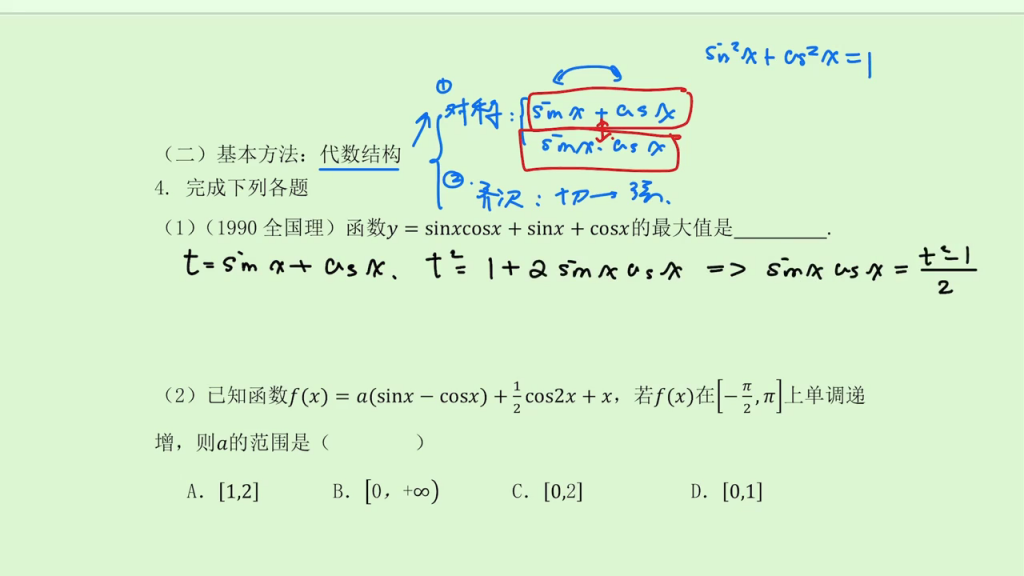 sin²x + cos²x = 1
① 对称: sinx + cosx
sinx·cosx
(二) 基本方法: 代数结构
② 齐次: 切→弦.
4. 完成下列各题
(1)(1990 全国理) 函数y = sinxcosx + sinx + cosx的最大值是________.
t = sinx + cosx. t² = 1 + 2 sinx cosx => sinx cosx = (t²-1)/2
(2) 已知函数f(x) = a(sinx − cosx) + 1/2 cos2x + x, 若f(x)在[−π/2, π]上单调递
增, 则a的范围是 ( )
A. [1,2] B. [0, +∞) C. [0,2] D. [0,1]